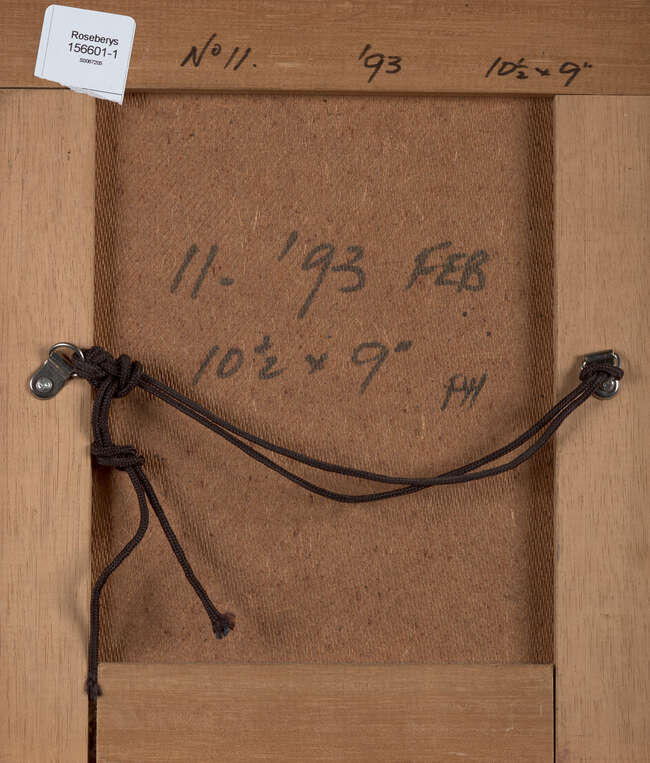 Roseberys
156601-1
S0067205
No 11. '93 10½ x 9"
11. '93 FEB
10½ x 9"
PH